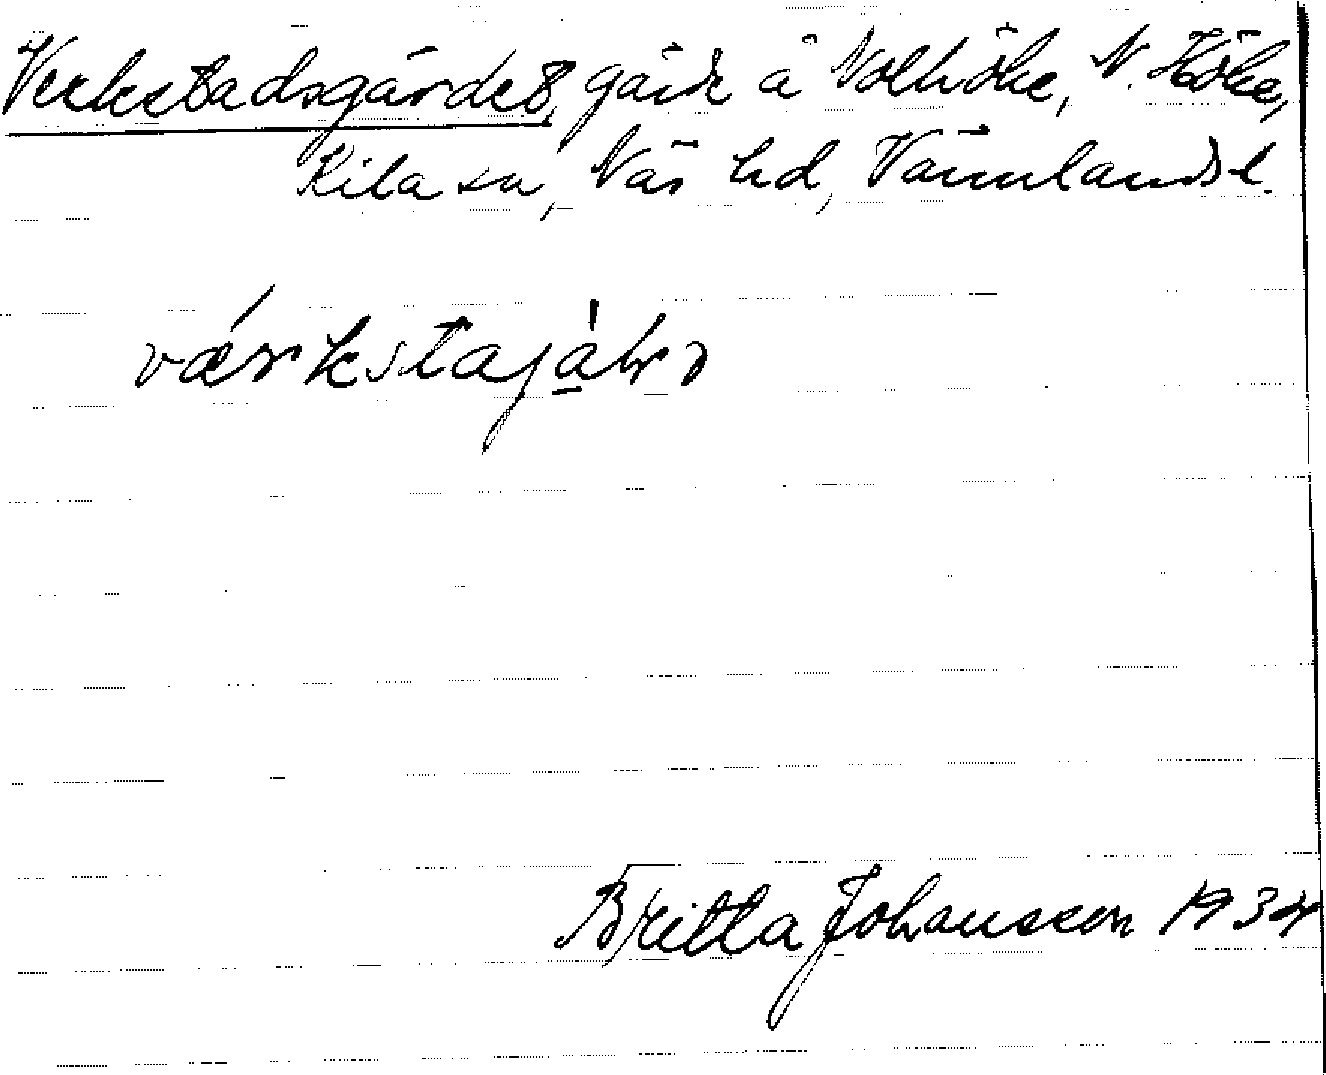 Verkstadsgärdet, gärde å Nolhöke, N. Höke,
Kila sn, Näs hd, Värmlands l.
værkstajáhrɔ
Britta Johansson 1934